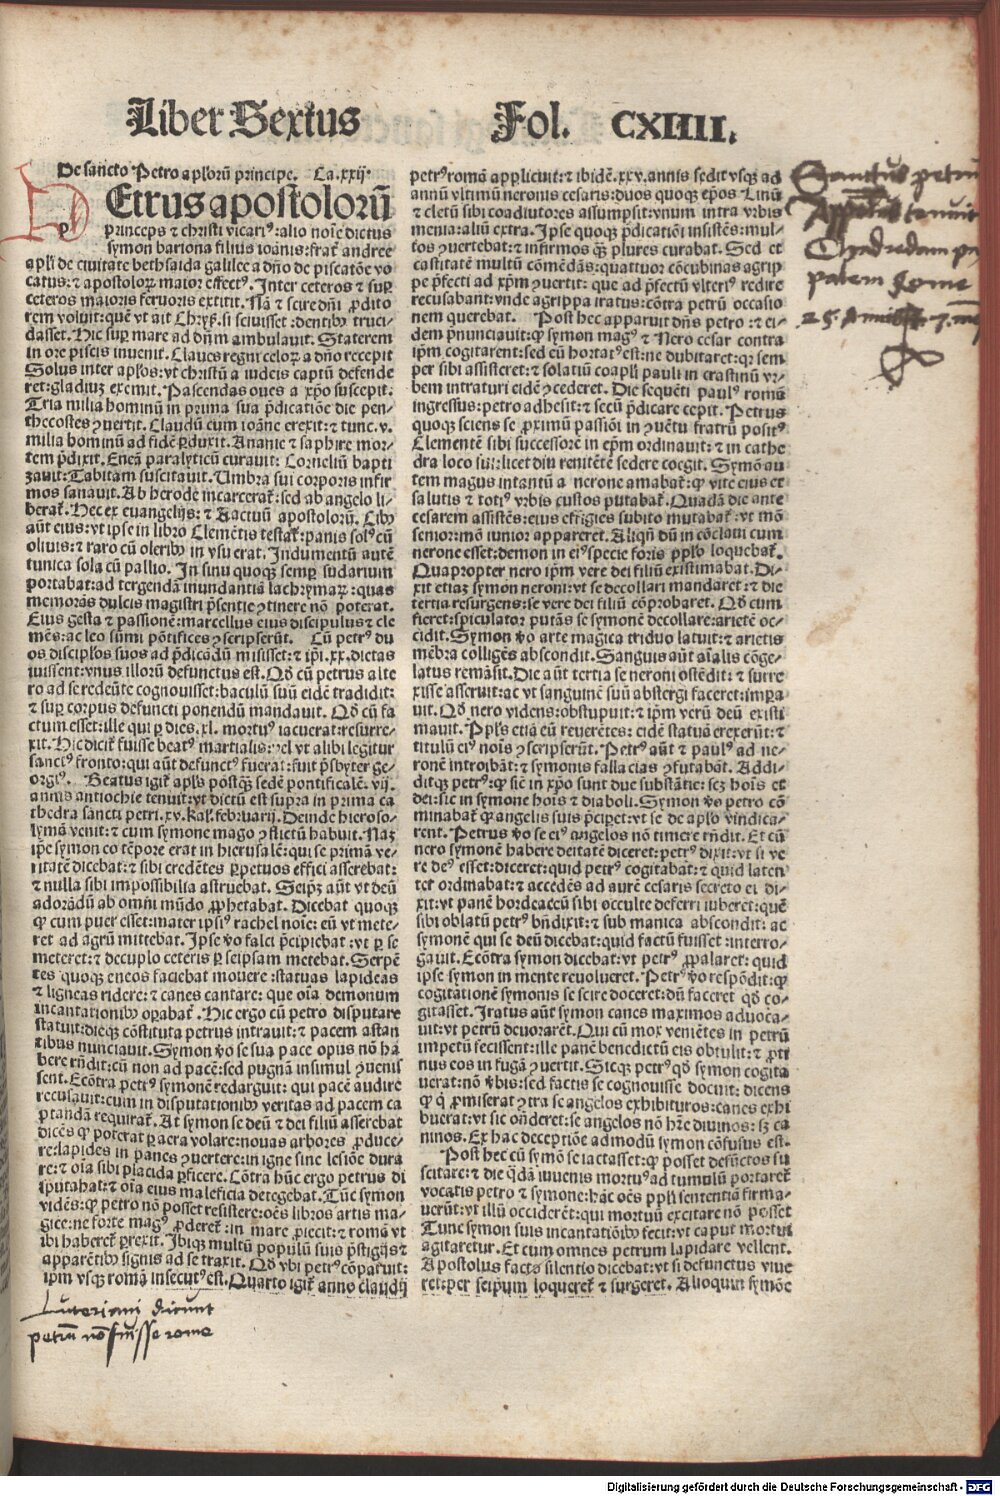 Liber Sextus Fol. CXIIII.
De sancto Petro aplorū principe. Ca.xxij.
PEtrus apostolorū
princeps ⁊ christi vicariꝰ: alio noīe dictus
symon bariona filius ioānis: frat̄ andree
apl'i de ciuitate bethsaida galilee a dn̄o de piscatōe vo
catus: ⁊ apostoloꝝ maior effectꝰ. Inter ceteros ⁊ suꝑ
ceteros maioris feruoris extitit. Nā ⁊ scire dn̄i ꝓdito
rem voluit: quē vt ait Chryẜ. si sciuisset: dentibꝰ truci-
dasset. Hic suꝑ mare ad dn̄m ambulauit. Staterem
in ore piscis inuenit. Claues regni celoꝝ a dn̄o recepit
Solus inter apl'os: vt christū a iudeis captū defende
ret: gladiuȝ exemit. Pascendas oues a xp̄o suscepit.
Tria milia hominū in prima sua p̄dicatiōe die pen-
thecostes ꝯuertit. Claudū cum ioāne erexit: ⁊ tunc.v.
milia hominū ad fidē ꝑduxit. Ananie ⁊ saphire mor-
tem p̄dixit. Eneā paralyticū curauit: Corneliū bapti
zauit: Tabitam suscitauit. Umbra sui corporis infir
mos sanauit. Ab herode incarcerat̄: sed ab angelo li-
berat̄. Hec ex euangelijs: ⁊ Actuū apostolorū. Cibꝰ
aūt eius: vt ipse in libro Clemētis testat̄: panis solꝰ cū
oliuis: ⁊ raro cū oleribꝰ in vsu erat. Indumentū autē
tunica sola cū pallio. In sinu quoqꝫ semꝑ sudarium
portabat: ad tergendā inundantiā lachrymaꝝ: quas
memorās dulcis magistri p̄sentie ꝯtinere nō poterat.
Eius gesta ⁊ passionē: marcellus eius discipulus ⁊ cle
mēs: ac leo sūmi pōtifices ꝯscripserūt. Cū petrꝰ du
os discipl'os suos ad p̄dicādū misisset: ⁊ ip̄i.xx. dictas
iuissent: vnus illorū defunctus est. Qd̄ cū petrus alte
ro ad se redeūte cognouisset: baculū suū eidē tradidit:
⁊ suꝑ corpus defuncti ponendū mandauit. Qd̄ cū fa
ctum esset: ille qui ꝑ dies.xl. mortuꝰ iacuerat: resurre-
xit. Hic dicit̄ fuisse beatꝰ martialis: vel vt alibi legitur
sanctꝰ fronto: qui aūt defunctꝰ fuerat: fuit p̄sbyter ge-
orgiꝰ. Beatus igit̄ apl'o postqꝫ sedē pontificalē. vij.
annis antiochie tenuit: vt dictū est supra in prima ca
thedra sancti petri.xv.kal'. februarij. Deinde hieroso-
lymā venit: ⁊ cum symone mago ꝯflictū habuit. Naȝ
ip̄e symon eo tēpore erat in hierusalē: qui se primā ve-
ritatē dicebat: ⁊ sibi credētes ꝑpetuos effici asserebat:
⁊ nulla sibi impossibilia astruebat. Seip̄ȝ aūt vt deū
adorādū ab omni mūdo ꝓphetabat. Dicebat quoqꝫ
ꝙ cum puer esset: mater ipsiꝰ rachel noīe: eū vt mete-
ret ad agrū mittebat. Ipse ꝟo falci p̄cipiebat: vt ꝑ se
meteret: ⁊ decuplo ceteris ꝑ seipsam metebat. Serpē
tes quoqꝫ eneos faciebat mouere: statuas lapideas
⁊ ligneas ridere: ⁊ canes cantare: que oīa demonum
incantationibꝰ oꝑabat̄. Hic ergo cū petro disputare
statuit: dieqꝫ cōstituta petrus intrauit: ⁊ pacem astan
tibus nunciauit. Symon ꝟo se sua pace opus nō ha
bere rn̄dit: cū non ad pacē: sed pugnā insimul ꝯuenis
sent. Ecōtra petrꝰ symonē redarguit: qui pacē audire
recusauit: cum in disputationibꝰ veritas ad pacem ca
ptandā requirat̄. At symon se deū ⁊ dei filiū asserebat
dicēs ꝙ poterat ꝑ aera volare: nouas arbores ꝓduce-
re: lapides in panes ꝯuertere: in igne sine lesiōe dura
re: ⁊ oīa sibi placida ꝑficere. Cōtra hūc ergo petrus di
sputabat: ⁊ oīa eius maleficia detegebat. Tūc symon
vidēs: ꝙ petro nō posset resistere: oēs libros artis ma-
gice: ne forte magꝰ ꝓderet̄: in mare ꝓiecit: ⁊ romā vt
ibi haberet̄ ꝑrexit. Ibiqꝫ multū populū suis p̄stigijs ⁊
apparētibꝰ signis ad se traxit. Qd̄ vbi petrꝰ cōparuit:
ip̄m vsqꝫ romā insecutꝰ est. Quarto igit̄ anno claudij
Luteriani dicunt
petrū nō fuisse rome
petrꝰ romā applicuit: ⁊ ibidē.xxv. annis sedit vsqꝫ ad
annū vltimū neronis cesaris: duos quoqꝫ ep̄os Linū
⁊ cletū sibi coadiutores assumpsit: vnum intra vrbis
menia: aliū extra. Ipse quoqꝫ p̄dicatiōi insistēs: mul-
tos ꝯuertebat: ⁊ infirmos qꝫ plures curabat. Sed et
castitatē multū cōmēdās: quattuor cōcubinas agrip
pe p̄fecti ad xp̄m ꝯuertit: que ad p̄fectū vlteriꝰ redire
recusabant: vnde agrippa iratus: cōtra petrū occasio
nem querebat. Post hec apparuit dn̄s petro: ⁊ ei-
dem p̄nunciauit: ꝙ symon magꝰ ⁊ Nero cesar contra
ip̄m cogitarent: sed cū hortatꝰ est: ne dubitaret: qꝛ sem-
per sibi assisteret: ⁊ solatiū coapl'i pauli in crastinū vr-
bem intraturi eidē ꝯcederet. Die sequēti paulꝰ romā
ingressus: petro adhesit: ⁊ secū p̄dicare cepit. Petrus
quoqꝫ sciens se ꝓximū passiōi in ꝯuētu fratrū positꝰ
Clementē sibi successorē in ep̄m ordinauit: ⁊ in cathe
dra loco sui: licet diu renitētē sedere coegit. Symō au
tem magus intantū a nerone amabat̄: ꝙ vite eius et
salutis ⁊ totiꝰ vrbis custos putabat̄. Quadā die ante
cesarem assistēs: eius effigies subito mutabat̄: vt mō
senior: mō iunior appareret. Aliqn̄ dū in cōclaui cum
nerone esset: demon in eiꝰ specie foris ppl'o loquebat̄.
Quapropter nero ip̄m vere dei filiū existimabat. Di-
xit etiaȝ symon neroni: vt se decollari mandaret: ⁊ die
tertia resurgens: se vere dei filiū cōprobaret. Qd̄ cum
fieret: spiculator putās se symonē decollare: arietē oc-
cidit. Symon ꝟo arte magica triduo latuit: ⁊ arietis
mēbra colligēs abscondit. Sanguis aūt aīalis cōge-
latus remāsit. Die aūt tertia se neroni ostēdit: ⁊ surre
xisse asseruit: ac vt sanguinē suū abstergi faceret: impa
uit. Qd̄ nero videns: obstupuit: ⁊ ip̄m verū deū existi
mauit. Ppl's etiā eū reuerētes: eidē statuā erexerūt: ⁊
titulū eiꝰ noīs ꝯscripserūt. Petrꝰ aūt ⁊ paulꝰ ad ne-
ronē introibāt: ⁊ symonis fallacias ꝯfutabāt. Addi-
ditqꝫ petrꝰ: ꝙ sic̄ in xp̄o sunt due substātie: scȝ hoīs et
dei: sic in symone hoīs ⁊ diaboli. Symon ꝟo petro cō
minabat̄ ꝙ angelis suis p̄ciperet: vt se de apl'o vindica-
rent. Petrus ꝟo se eiꝰ angelos nō timere rn̄dit. Et cū
nero symonē habere deitatē diceret: petrꝰ dixit: vt si ve
re deꝰ esset: diceret: quid petrꝰ cogitabat: ⁊ quid laten
ter ordinabat: ⁊ accedēs ad aurē cesaris secreto ei di-
xit: vt panē hordeaceū sibi occulte deferri iuberet: quē
sibi oblatū petrꝰ bn̄dixit: ⁊ sub manica abscondit: ac
symonē qui se deū dicebat: quid factū fuisset: interro-
gauit. Ecōtra symon dicebat: vt petrꝰ ꝓpalaret: quid
ipse symon in mente reuolueret. Petrꝰ ꝟo respōdit: ꝙ
cogitationē symonis se scire doceret: dū faceret qd̄ co-
gitasset. Iratus aūt symon canes maximos aduoca-
uit: vt petrū deuorarēt. Qui cū mox veniētes in petrū
impetū fecissent: ille panē benedictū eis obtulit: ⁊ ꝓti
nus eos in fugā ꝯuertit. Sicqꝫ petrꝰ qd̄ symon cogita
uerat: nō ꝟbis: sed factis se cognouisse docuit: dicens
ꝙ q̇ ꝓmiserat ꝯtra se angelos exhibituros: canes exhi
buerat: vt sic on̄deret: se angelos nō hr̄e diuinos: sȝ ca
ninos. Ex hac deceptiōe admodū symon cōfusus est.
Post hec cū symō se iactasset: ꝙ posset defūctos su
scitare: ⁊ die q̇dā iuuenis mortuꝰ ad tumulū portaret̄
vocatis petro ⁊ symone: hāc oēs ppl'i sententiā firma-
uerūt: vt illū occideret̄: qui mortuū excitare nō posset
Tunc symon suis incantatiōibꝰ fecit: vt caput mortui
agitaretur. Et cum omnes petrum lapidare vellent.
Apostolus facto silentio dicebat: vt si defunctus viue
ret: per seip̄um loqueret̄ ⁊ surgeret. Alioquin symōe
Sanctus petrus
Appostolꝰ tenuit
Chadredam pa
palem Rome
25. Annis ⁊ 7. mē
Digitalisierung gefördert durch die Deutsche Forschungsgemeinschaft - DFG